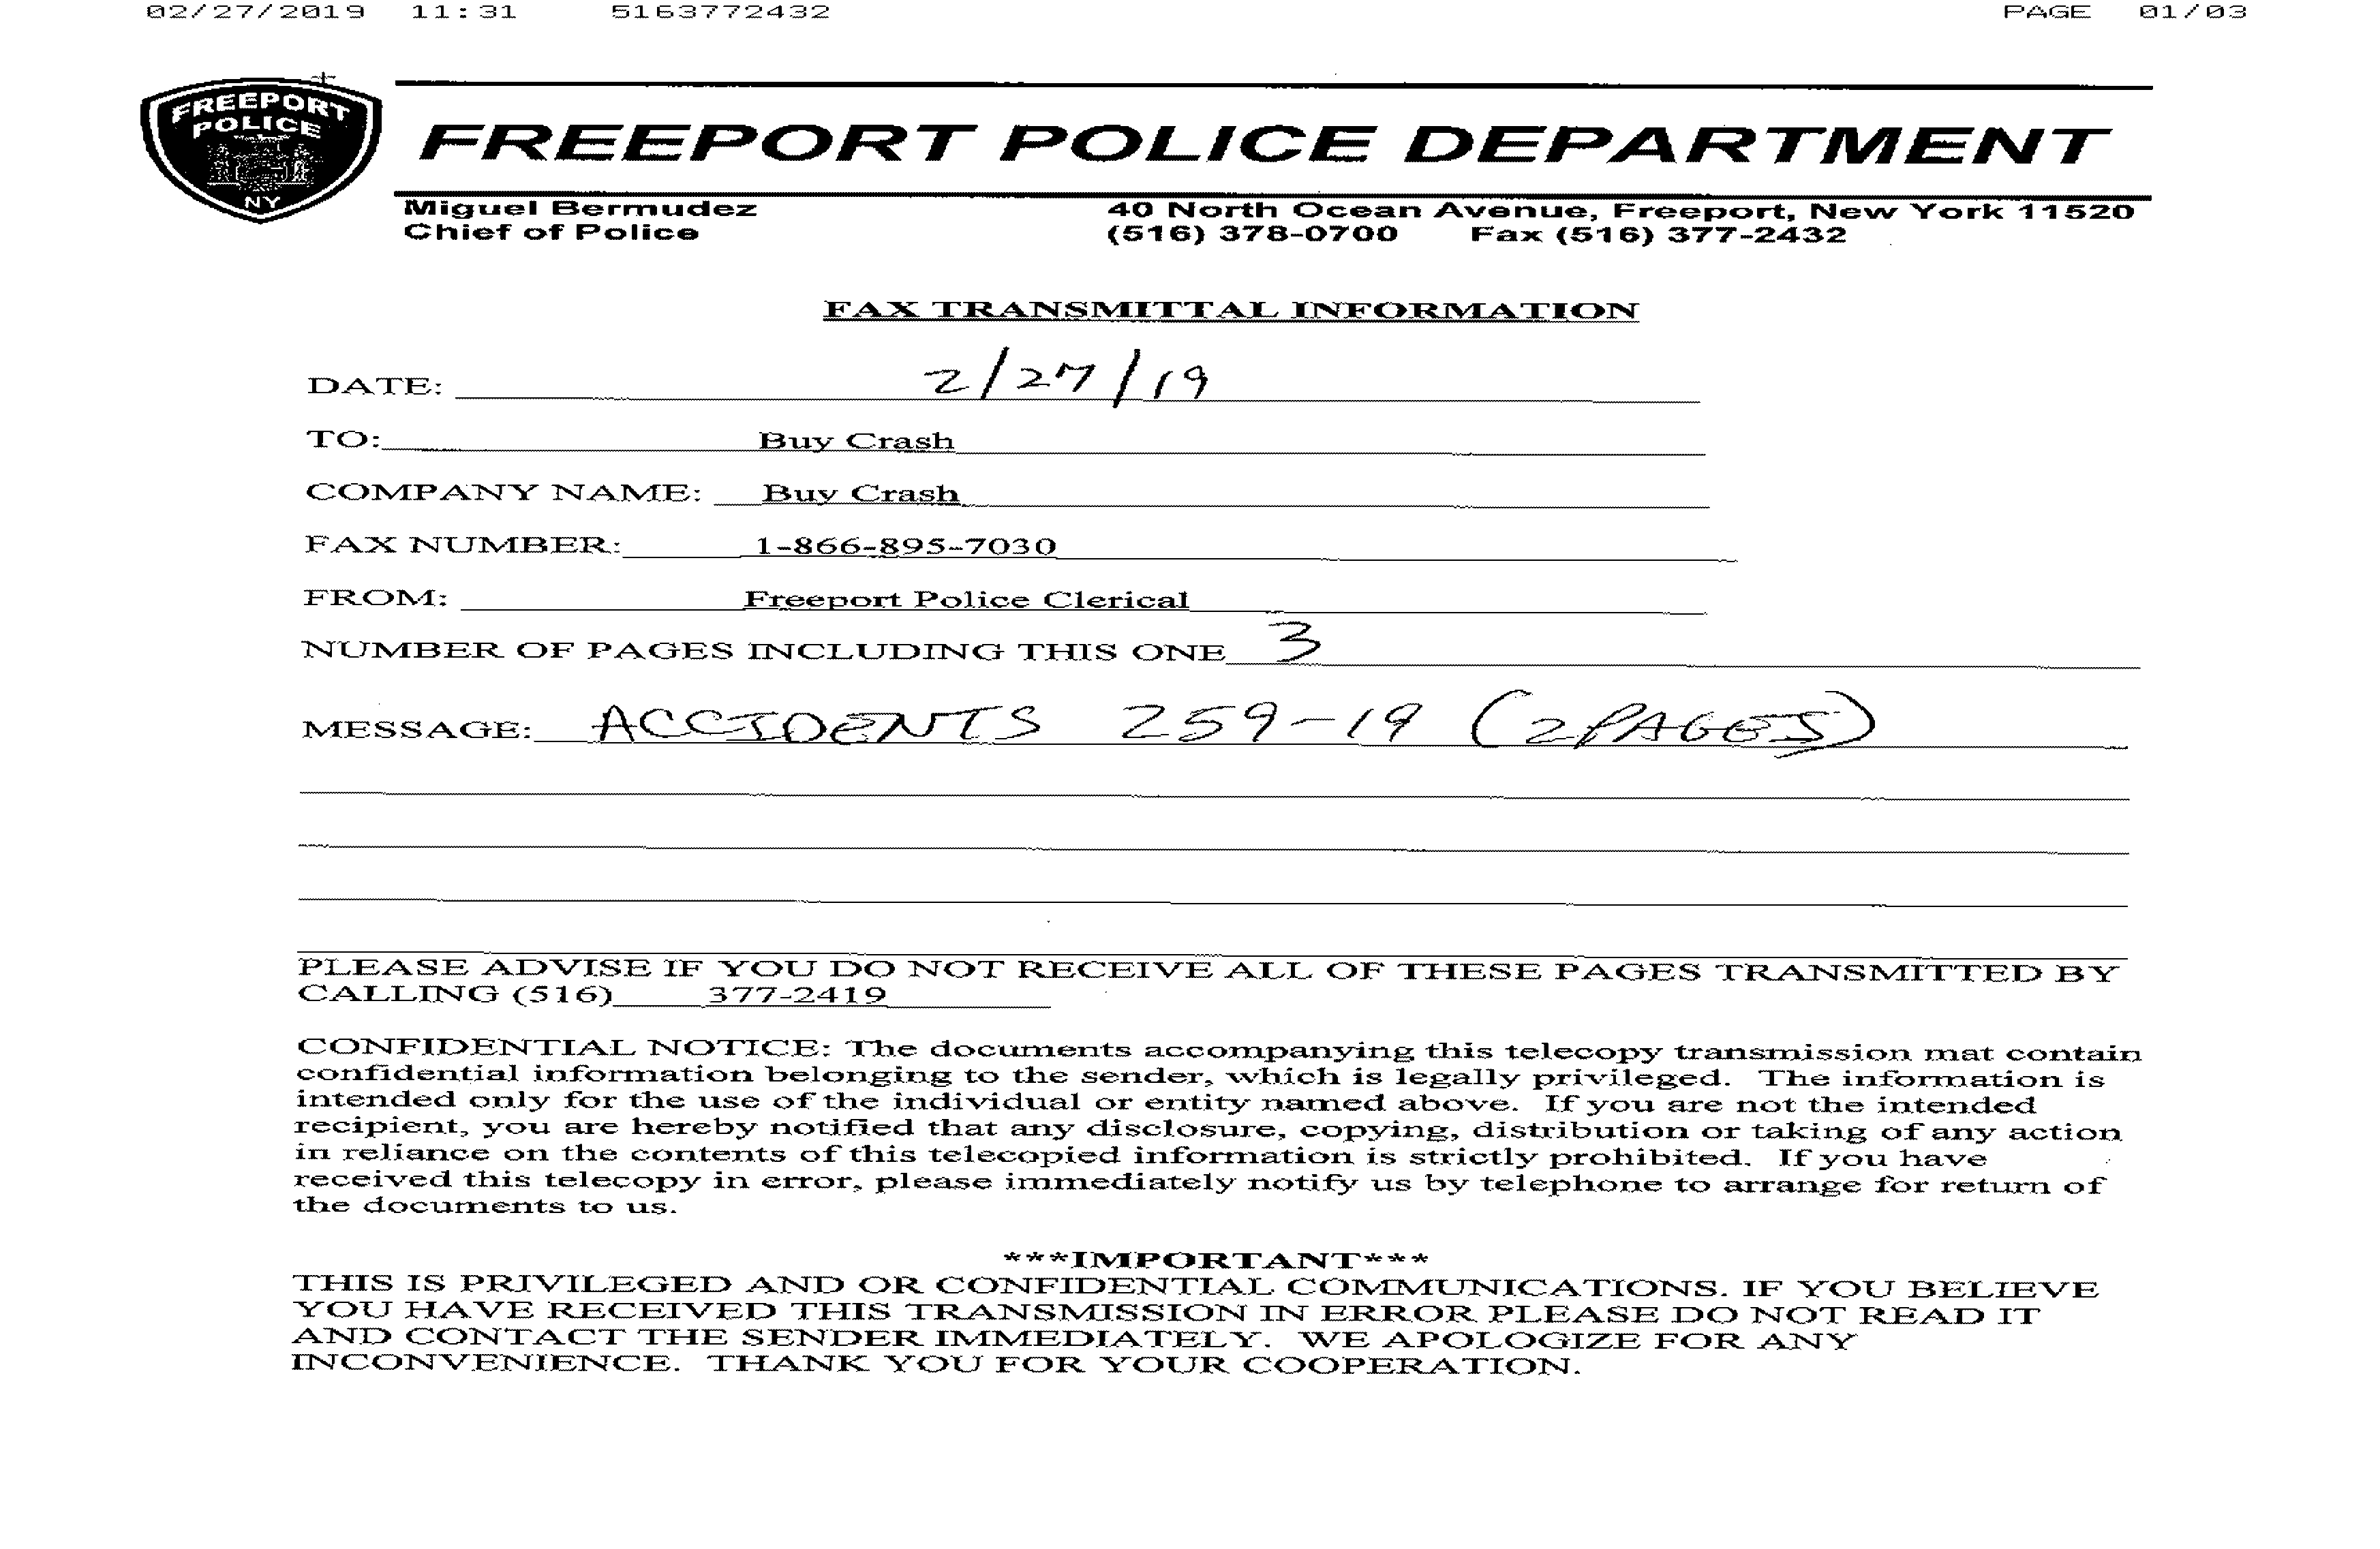 02/27/2019 11:31 5163772432 PAGE 01/03
FREEPORT
POLICE
NY
FREEPORT POLICE DEPARTMENT
Miguel Bermudez 40 North Ocean Avenue, Freeport, New York 11520
Chief of Police (516) 378-0700 Fax (516) 377-2432
FAX TRANSMITTAL INFORMATION
DATE: 2/27/19
TO: Buy Crash
COMPANY NAME: Buy Crash
FAX NUMBER: 1-866-895-7030
FROM: Freeport Police Clerical
NUMBER OF PAGES INCLUDING THIS ONE 3
MESSAGE: ACCIDENTS 259-19 (2 PAGES)
PLEASE ADVISE IF YOU DO NOT RECEIVE ALL OF THESE PAGES TRANSMITTED BY
CALLING (516) 377-2419
CONFIDENTIAL NOTICE: The documents accompanying this telecopy transmission mat contain
confidential information belonging to the sender, which is legally privileged. The information is
intended only for the use of the individual or entity named above. If you are not the intended
recipient, you are hereby notified that any disclosure, copying, distribution or taking of any action
in reliance on the contents of this telecopied information is strictly prohibited. If you have
received this telecopy in error, please immediately notify us by telephone to arrange for return of
the documents to us.
***IMPORTANT***
THIS IS PRIVILEGED AND OR CONFIDENTIAL COMMUNICATIONS. IF YOU BELIEVE
YOU HAVE RECEIVED THIS TRANSMISSION IN ERROR PLEASE DO NOT READ IT
AND CONTACT THE SENDER IMMEDIATELY. WE APOLOGIZE FOR ANY
INCONVENIENCE. THANK YOU FOR YOUR COOPERATION.